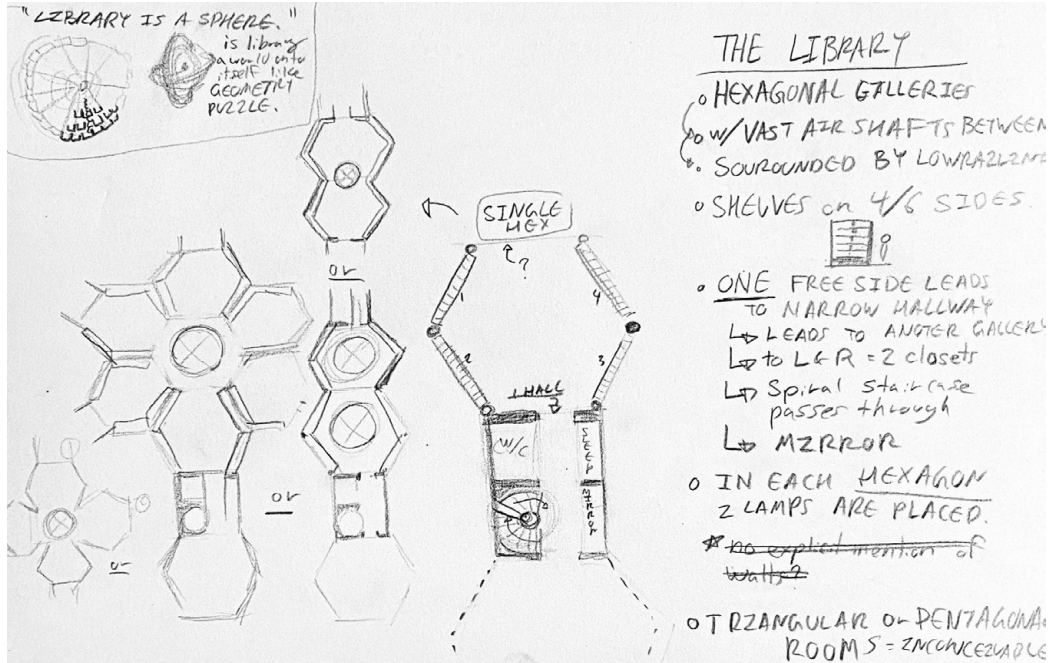 "LIBRARY IS A SPHERE."
is library
a world onto
itself like
GEOMETRY
PUZZLE.
SINGLE
HEX
?
or
or
or
1
4
2
3
1 HALL
W/C
SLEEP
MIRROR
THE LIBRARY
HEXAGONAL GALLERIES
W/ VAST AIR SHAFTS BETWEEN
SOUROUNDED BY LOWRAILING
SHELVES on 4/6 SIDES.
ONE FREE SIDE LEADS
TO NARROW HALLWAY
LEADS TO ANOTER GALLERY
to L&R = 2 closets
Spiral staircase
passes through
MIRROR
IN EACH HEXAGON
2 LAMPS ARE PLACED.
* no explicit mention of
walls?
TRIANGULAR or PENTAGONAL
ROOMS = INCONCEIVABLE